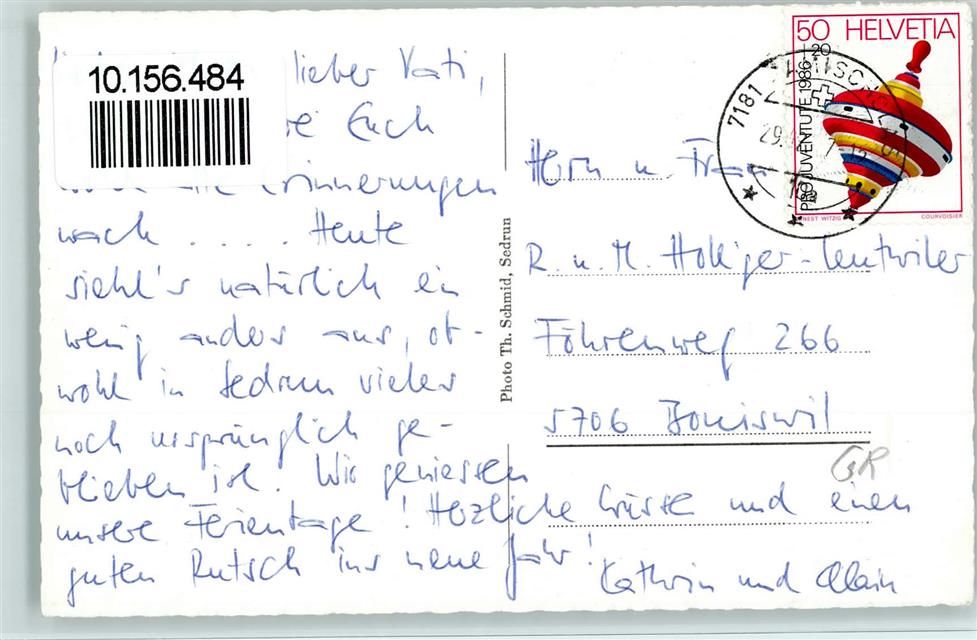 10.156.484
lieber Vati,
Euch
Erinnerungen
wach ..... Heute
sieht's natürlich ein
wenig anders aus, ob-
wohl in Sedrun vieles
noch ursprünglich ge-
blieben ist. Wir geniessen
unsere Ferientage! Herzliche Grüsse und einen
guten Rutsch ins neue Jahr!
Kathrin und Alain
Photo Th. Schmid, Sedrun
50 HELVETIA
+20
PRO JUVENTUTE 1986
ERNEST WITZIG
COURVOISIER
7181
Herrn u. Frau
R. u. M. Holliger-Leutwiler
Föhrenweg 266
5706 Boniswil
GR